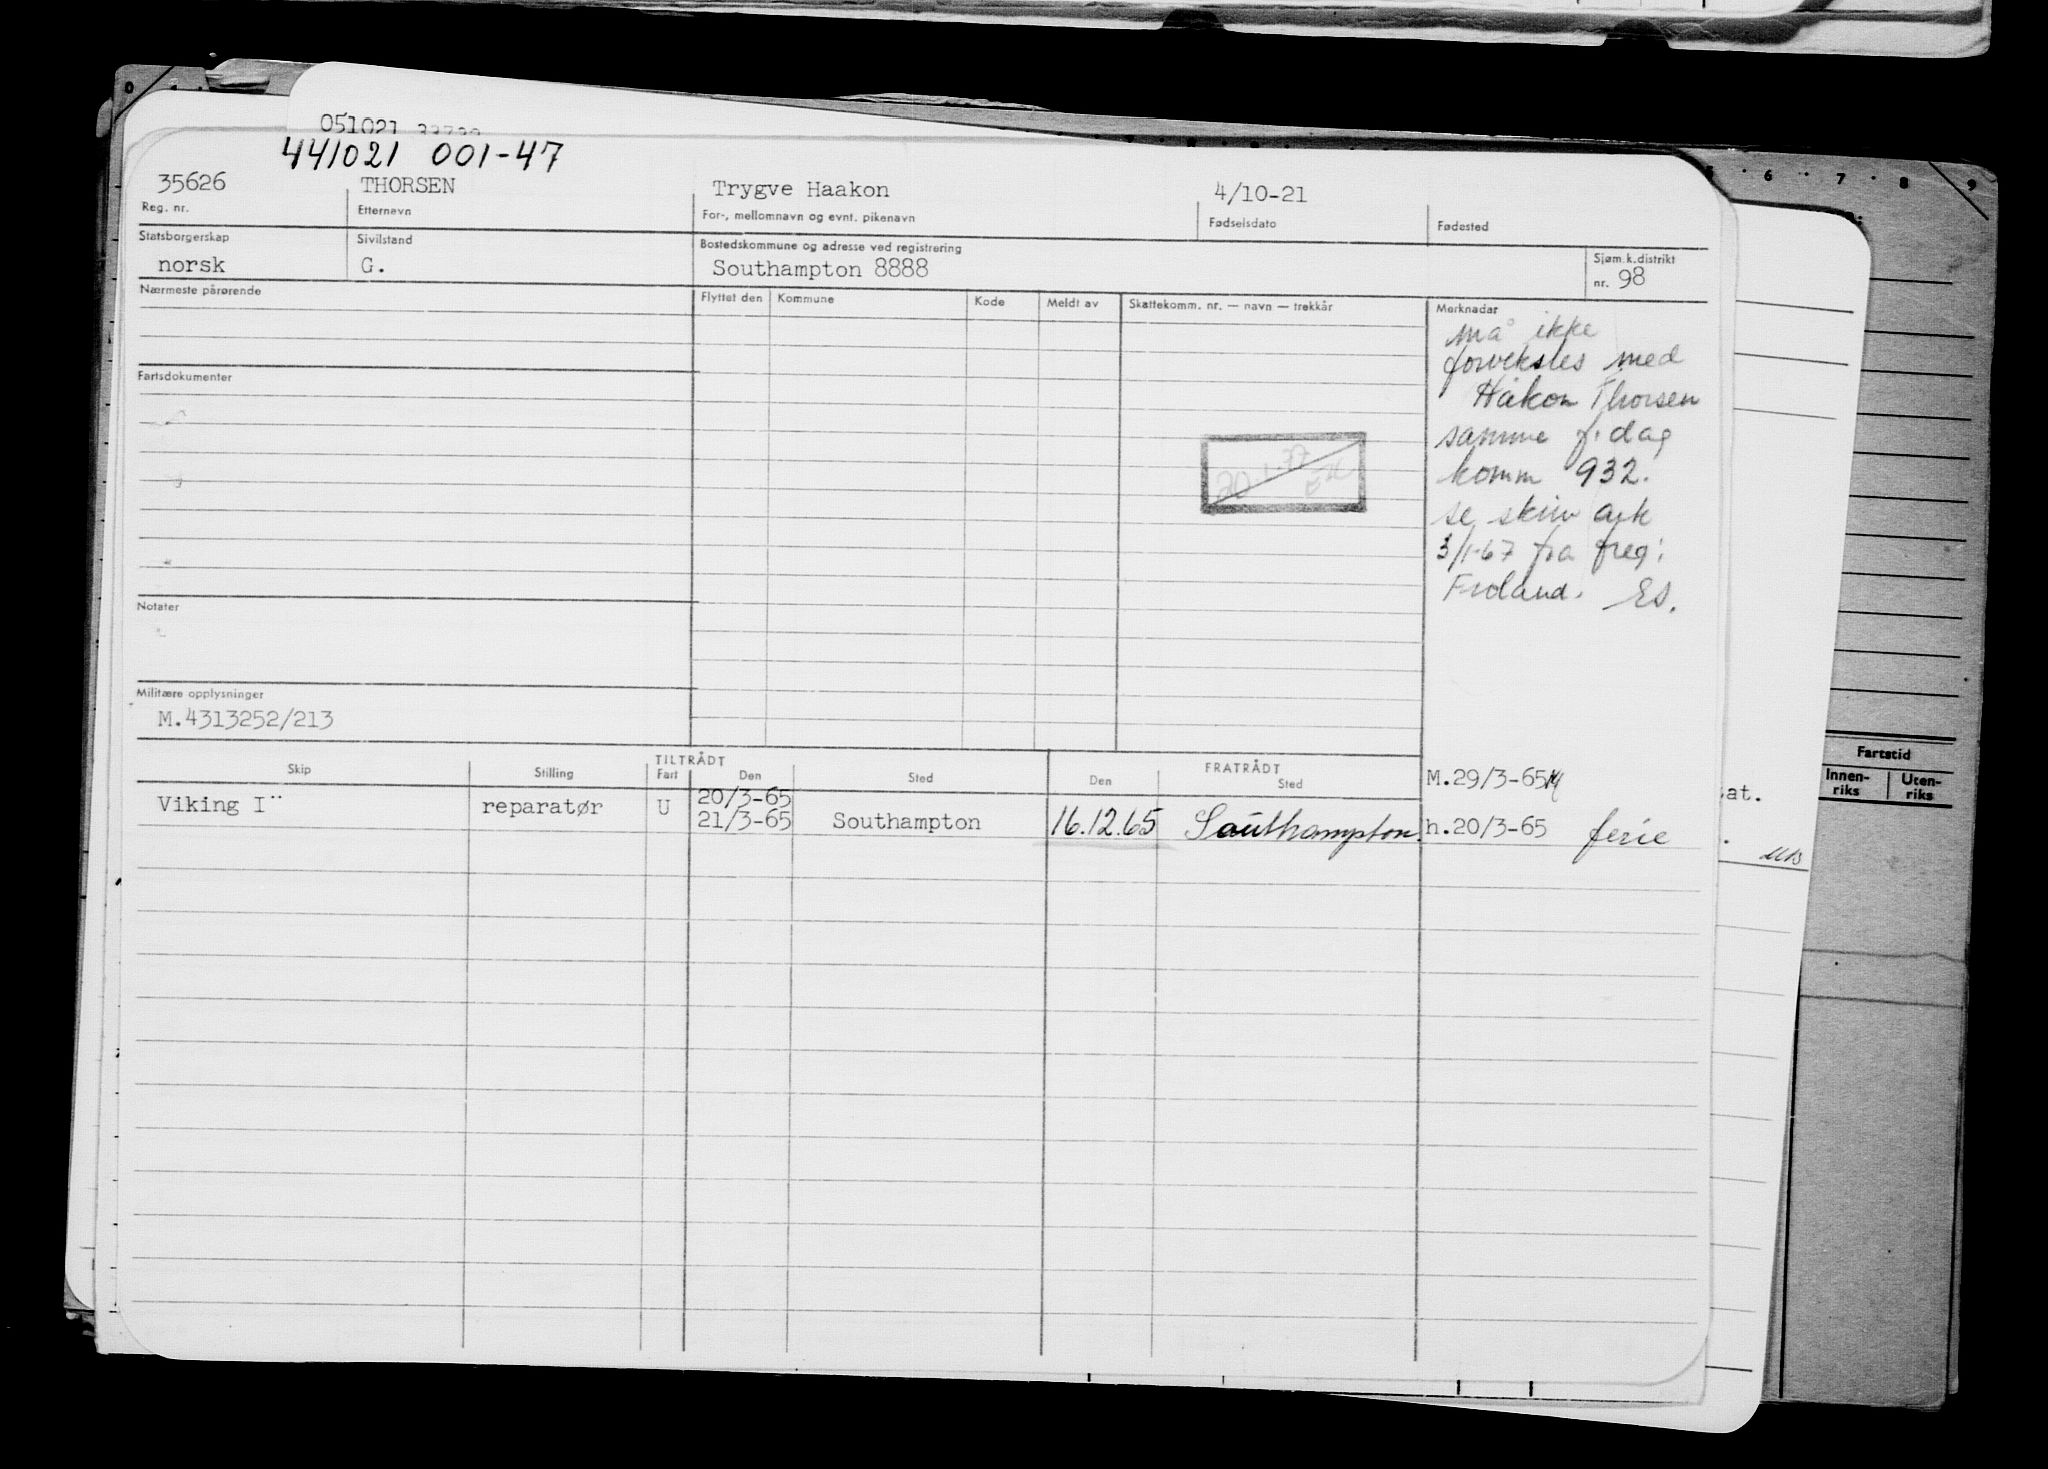 051021
441021 001-47
35626 THORSEN Trygve Haakon 4/10-21
Reg. nr. Etternavn For-, mellomnavn og evnt. pikenavn Fødselsdato Fødested
Statsborgerskap Sivilstand Bostedskommune og adresse ved registrering Sjøm.k.distrikt
norsk G. Southampton 8888 nr. 98
Nærmeste pårørende Flyttet den Kommune Kode Meldt av Skattekomm. nr. — navn — trekkår Merknader
må ikke
forveksles med
Håkon Thorsen
samme f. dag
komm 932.
se skriv ark
3/1-67 fra freg:
Froland. ES.
Fartsdokumenter
20.1.37
Notater
Militære opplysninger
M.4313252/213
TILTRÅDT FRATRÅDT
Skip Stilling Fart Den Sted Den Sted M.29/3-65
Viking I¨ reparatør U 20/3-65
21/3-65 Southampton 16.12.65 Southampton. h.20/3-65 ferie
5 6 7 8 9
0
Fartstid
Innen-
riks
Uten-
riks
at.